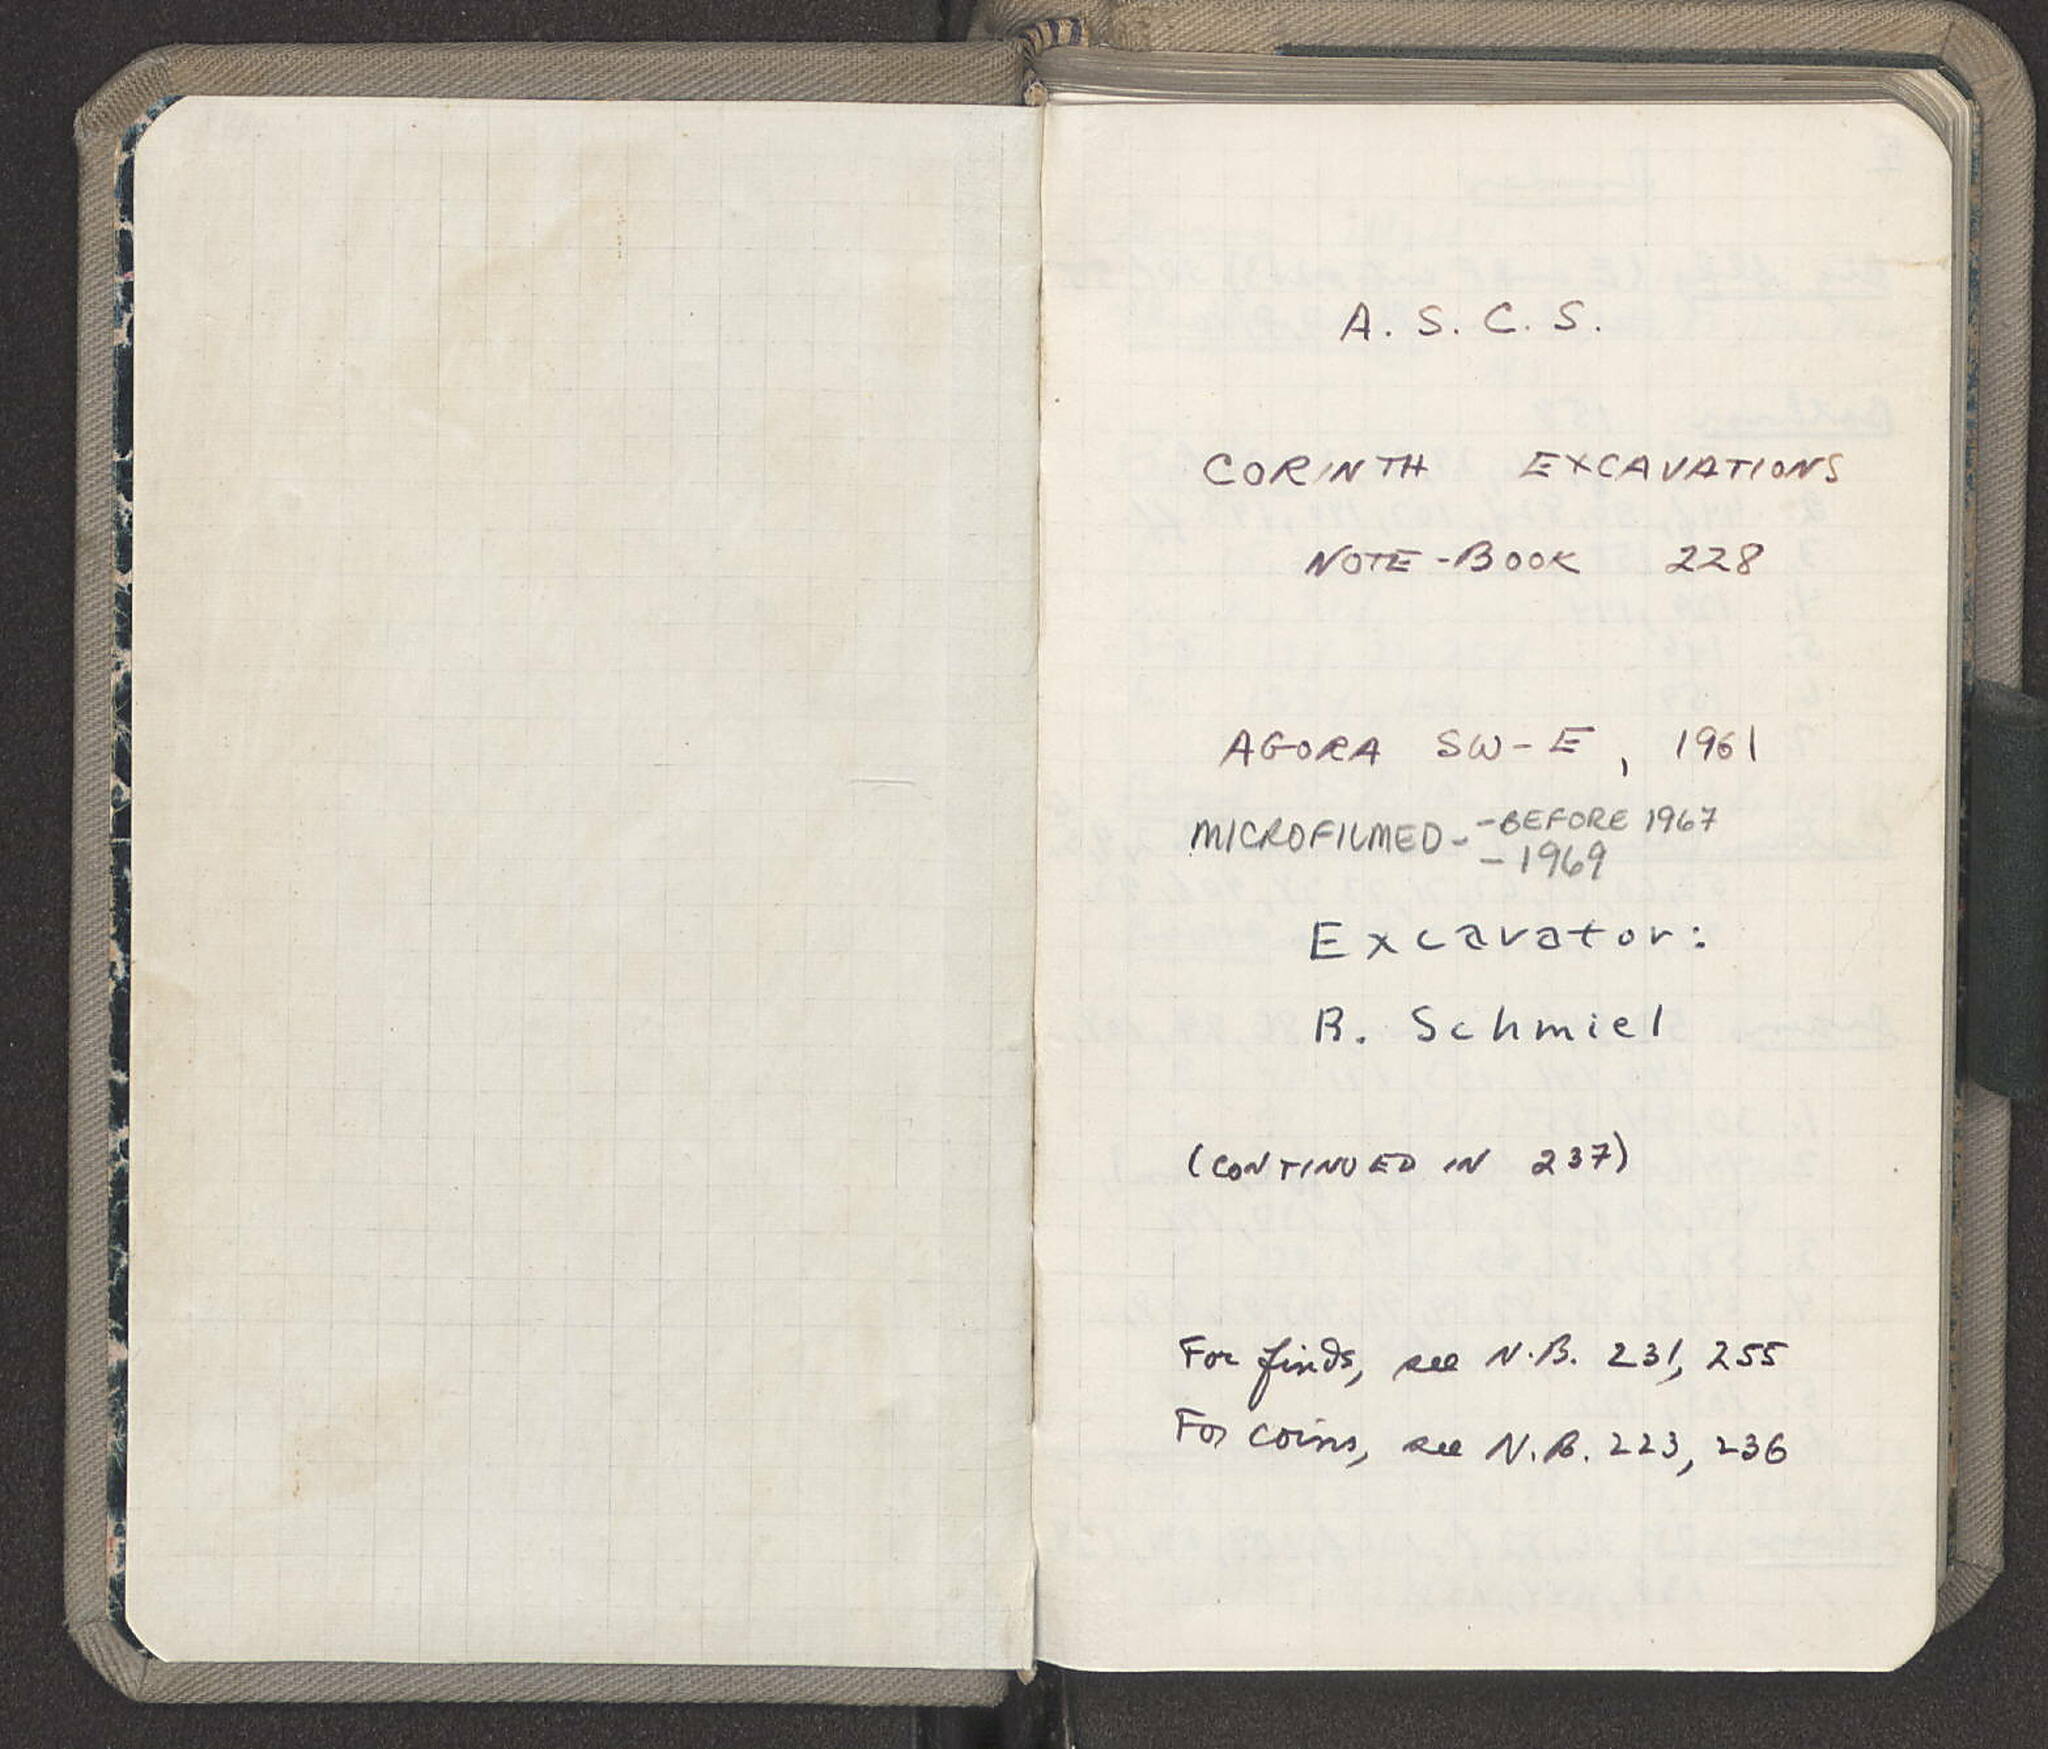 A. S. C. S.
CORINTH EXCAVATIONS
NOTE-BOOK 228
AGORA SW-E, 1961
MICROFILMED - - BEFORE 1967
- 1969
Excavator:
R. Schmiel
(CONTINUED IN 237)
For finds, see N.B. 231, 255
For coins, see N.B. 223, 236